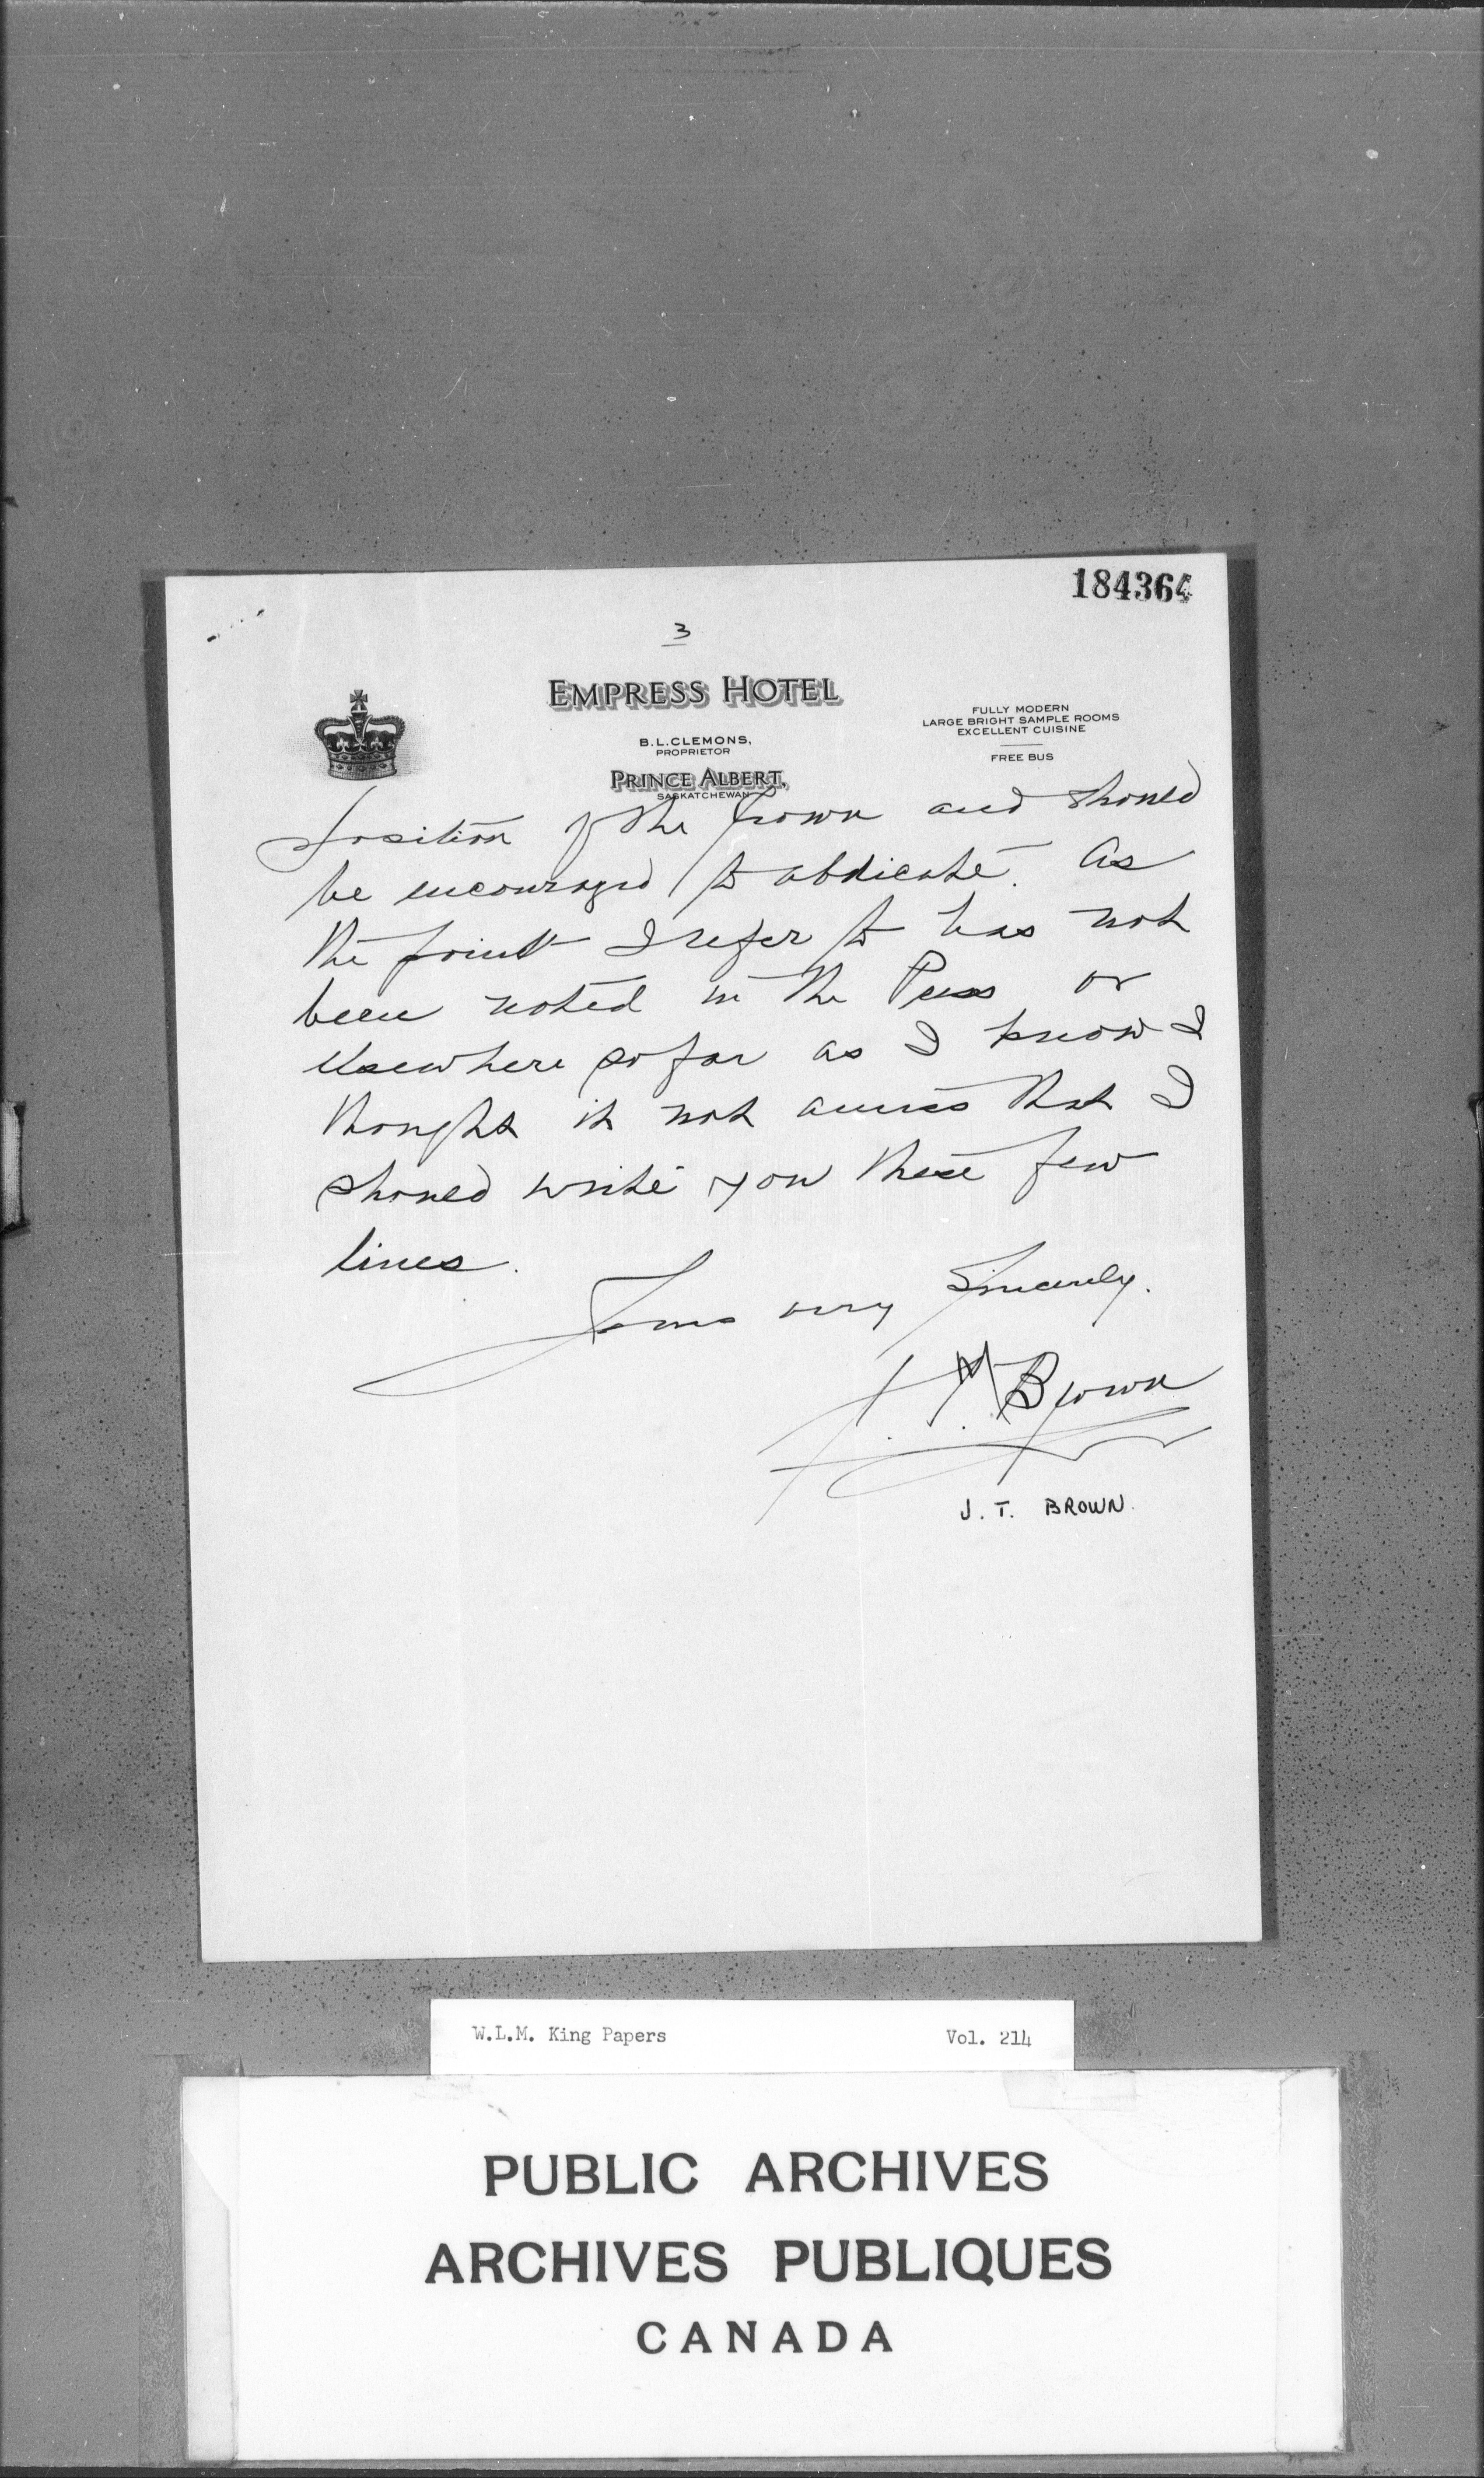 184364
3
EMPRESS HOTEL
B.L.CLEMONS,
PROPRIETOR
PRINCE ALBERT,
SASKATCHEWAN
FULLY MODERN
LARGE BRIGHT SAMPLE ROOMS
EXCELLENT CUISINE
FREE BUS
position of the Crown and should
be encouraged to abdicate. As
the point I refer to has not
been noted in the Press or
elsewhere so far as I know I
thought it not amiss that I
should write you these few
lines.
Yours very Sincerely.
J. T. Brown
J. T. BROWN.
W.L.M. King Papers Vol. 214
PUBLIC ARCHIVES
ARCHIVES PUBLIQUES
CANADA